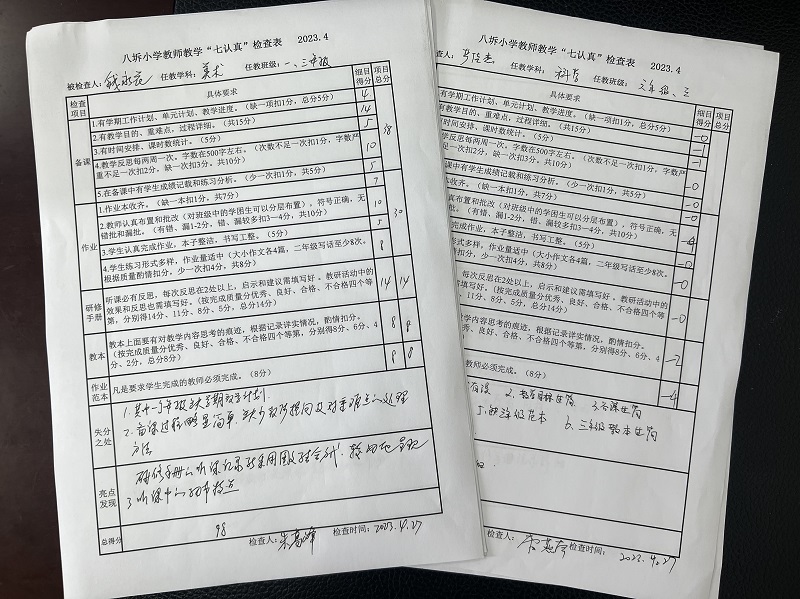 八坼小学教师教学“七认真”检查表 2023.4
被检查人: 任教学科: 美术 任教班级: 一、三年级
检查项目 具体要求 细目得分 项目总分
备课
1.有学期工作计划、单元计划、教学进度。(缺一项扣1分,总分5分) 4
2.有教学目的、重难点,过程详细。(共15分) 14
3.有时间安排、课时数统计。(5分) 5
4.教学反思每两周一次。字数在500字左右。(次数不足一次扣1分,字数严
重不足一次扣2分,缺一次扣3分,共10分) 10
5.在备课中有学生成绩记载和练习分析。(少一次扣1分,共5分) 5
38
作业
1.作业本收齐。(缺一本扣1分,共7分) 7
2.教师认真布置和批改(对班级中的学困生可以分层布置),符号正确,无
错批和漏批。(有错、漏1-2分,错、漏较多扣3—4分,共10分) 10
3.学生认真完成作业,本子整洁,书写工整。(5分) 5
4.学生练习形式多样,作业量适中(大小作文各4篇,二年级写话至少8次。
根据质量酌情扣分,少一次扣4分,共8分) 8
30
研修手册
听课必有反思,每次反思在2处以上,启示和建议需填写好。教研活动中的
效果和反思也需填写好。(按完成质量分优秀、良好、合格、不合格四个等
第,分别得14分、11分、8分、5分,总分14分) 14 14
教本
教本上面要有对教学内容思考的痕迹,根据记录详实情况,酌情扣分。
(按完成质量分优秀、良好、合格、不合格四个等第,分别得8分、6分、4
分、2分,总分8分) 8 8
作业范本
凡是要求学生完成的教师必须完成。(8分) 8 8
失分之处
1.其中一个年级缺学期教学计划.
2.备课过程略显简单,缺少教师提问及对重难点的处理
方法
亮点发现
研修手册的听课记录能采用图文结合式,
了听课中的细节
总得分 98 检查人: 检查时间: 2023.4.27
八坼小学教师教学“七认真”检查表 2023.4
查人: 任教学科: 科学 任教班级:
具体要求 细目得分 项目总分
有学期工作计划、单元计划、教学进度。(缺一项扣1分,总分5分) -0
有教学目的、重难点,过程详细。(共15分) -1
有时间安排、课时数统计。(5分) -1
学反思每两周一次。字数在500字左右。(次数不足一次扣1分,字数严
不足一次扣2分,缺一次扣3分,共10分)
课中有学生成绩记载和练习分析。(少一次扣1分,共5分) -0
本收齐。(缺一本扣1分,共7分) -0
真布置和批改(对班级中的学困生可以分层布置),符号正确,无
。(有错、漏1-2分,错、漏较多扣3—4分,共10分) -4
完成作业,本子整洁,书写工整。(5分) -0
式多样,作业量适中(大小作文各4篇,二年级写话至少8次。
扣分,少一次扣4分,共8分)
,每次反思在2处以上,启示和建议需填写好。教研活动中的
填写好。(按完成质量分优秀、良好、合格、不合格四个等
分、11分、8分、5分,总分14分) -0
学内容思考的痕迹,根据记录详实情况,酌情扣分。
优秀、良好、合格、不合格四个等第,分别得8分、6分、4 -2
教师必须完成。(8分) -4
6.三年级教本
检查人: 检查时间: 2023.4.27